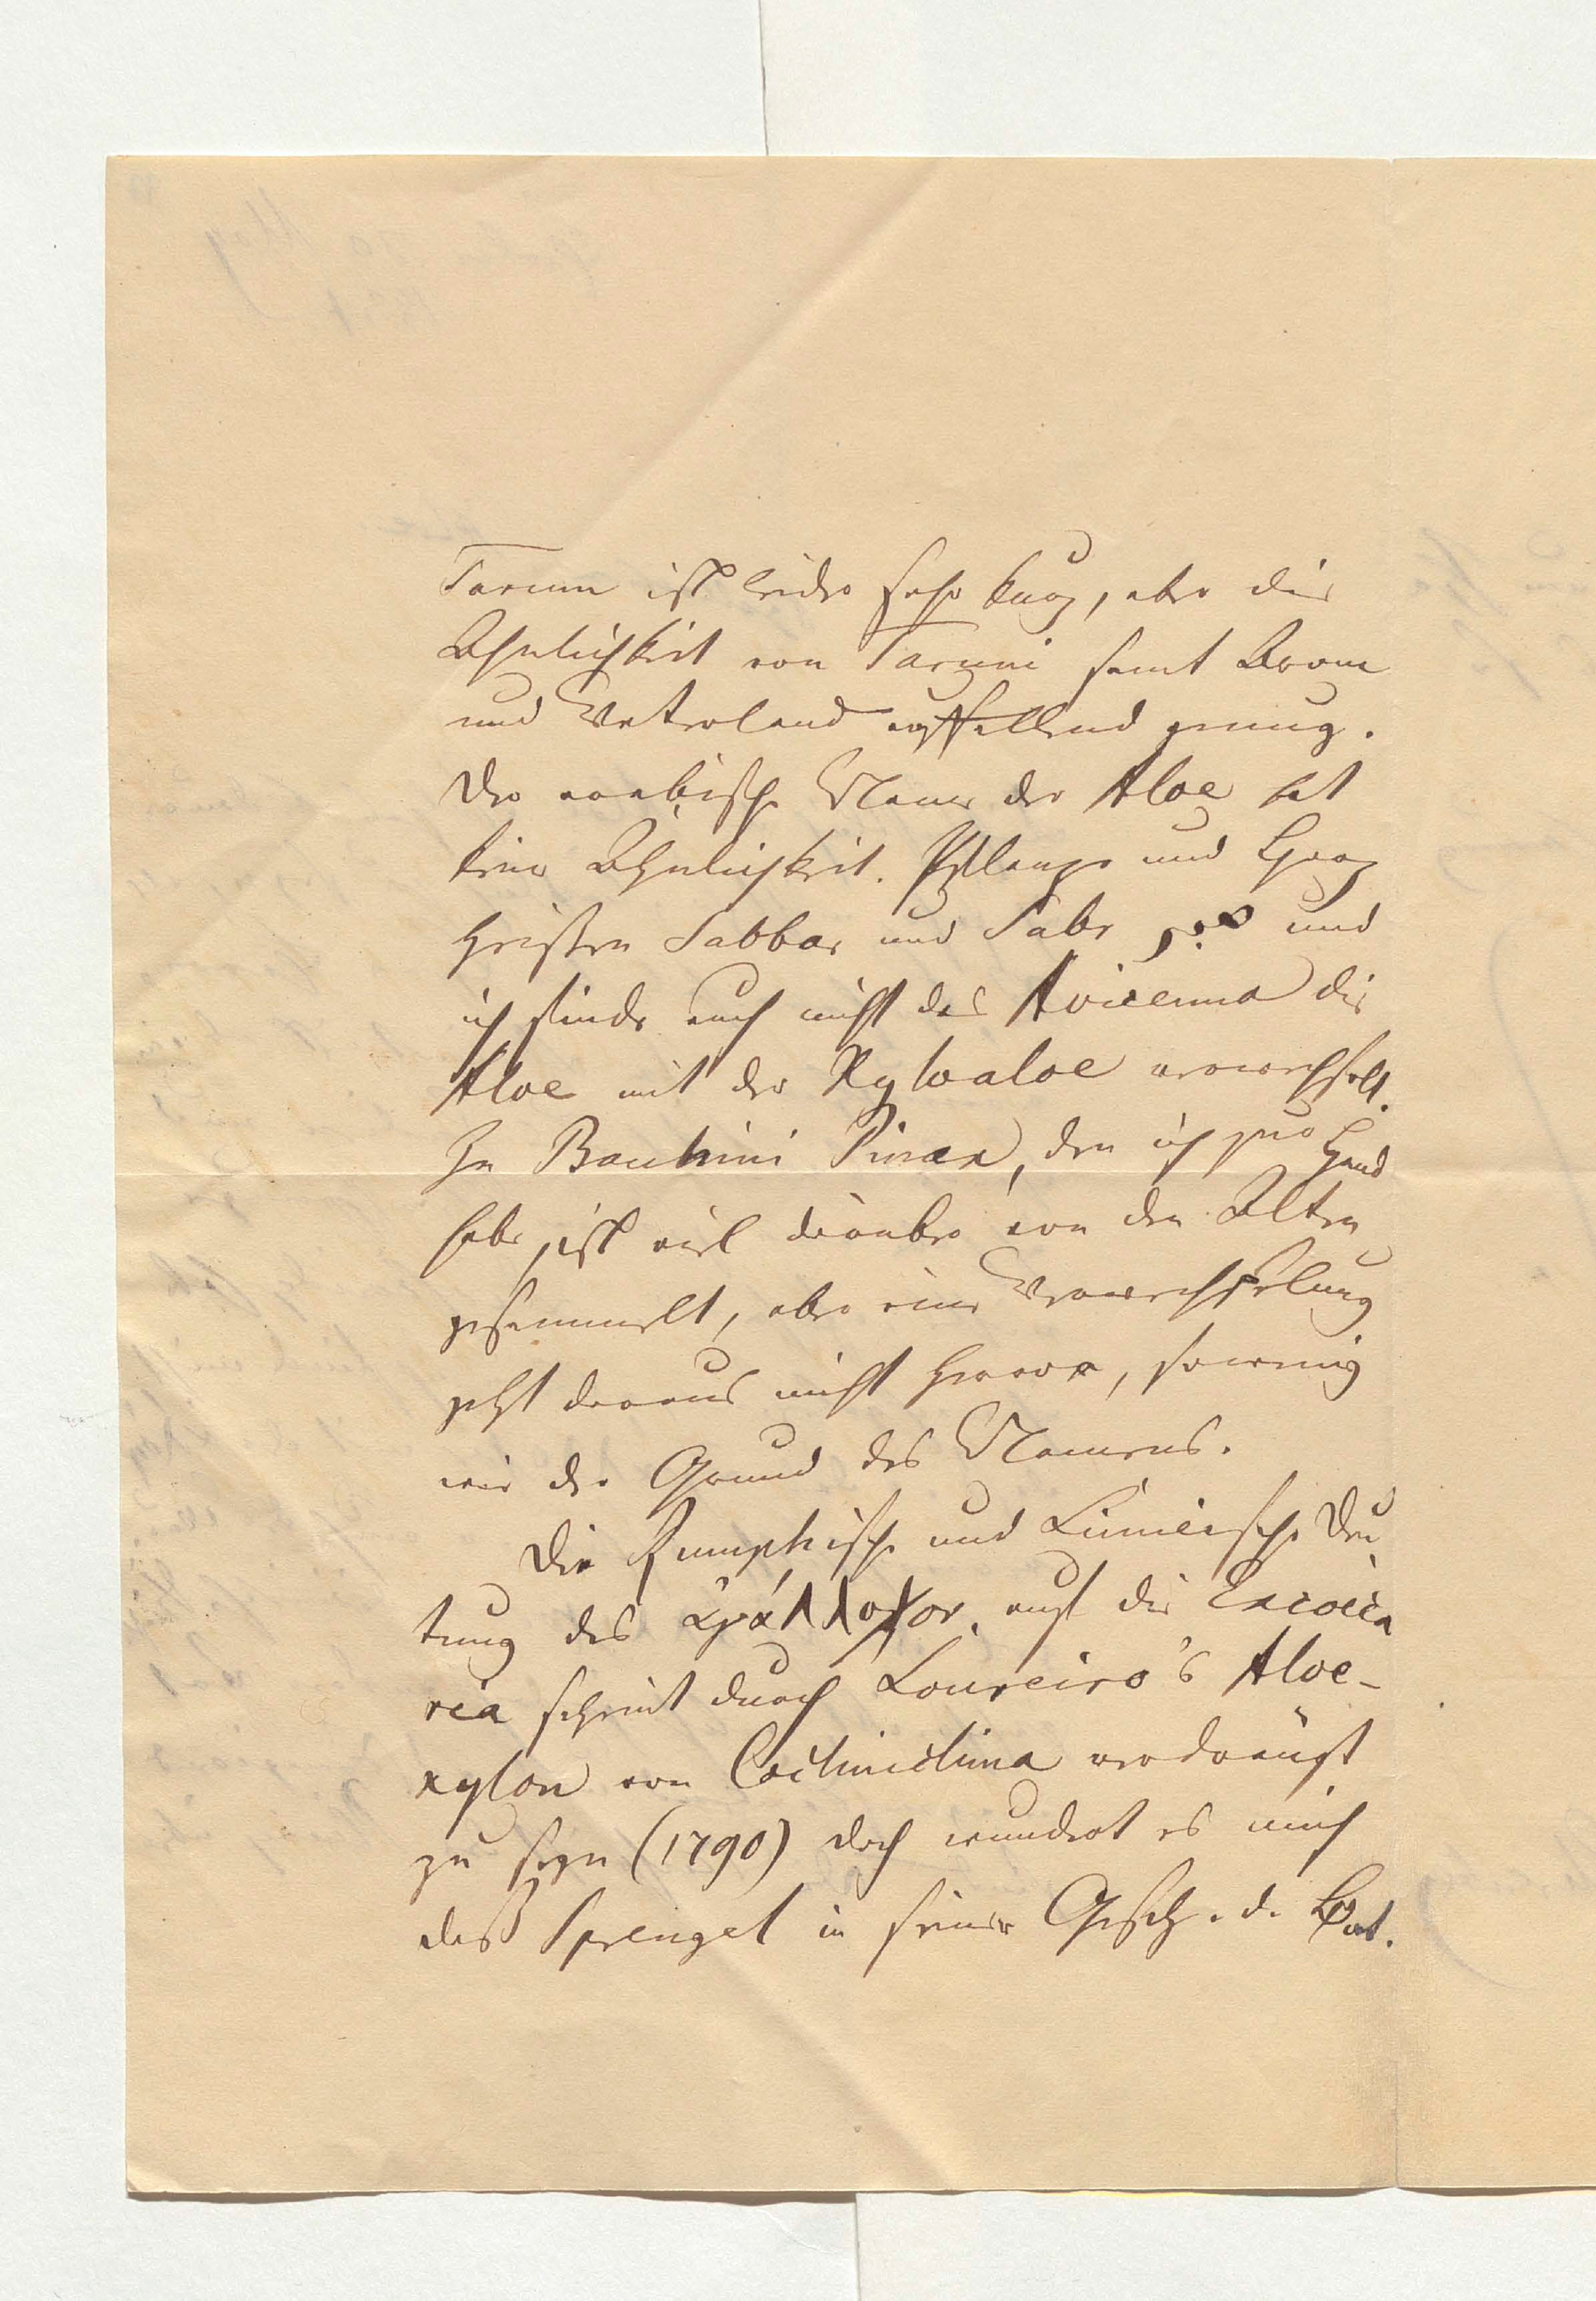 Tarum ist leider sehr kurz, aber die
Aehnlichkeit von Tarum samt Arom
und Vaterland auffallend genug.
Der arabische Name der Aloe hat
keine Aehnlichkeit. Pflanze und Harz
heißen Sabbar und Sabr صبر und
ich finde auch nicht das Avicenna die
Aloe mit der Xyloaloe verwechselt.
In Bauhini Pinax, den ich zur Hand
habe, ist viel darüber von den Alten
gesammelt, aber eine Verwechselung
geht daraus nicht hervor, sowenig
wie der Grund des Namens.
Die Rumphische und Linneische Deu
tung des ἀγάλλοχον auf die Excoeca
ria scheint durch Loureiro's Aloe-
xylon von Cochinchina verdrängt
zu seyn (1790) doch wundert es mich
daß Sprengel in seiner Gesch. d. Bot.